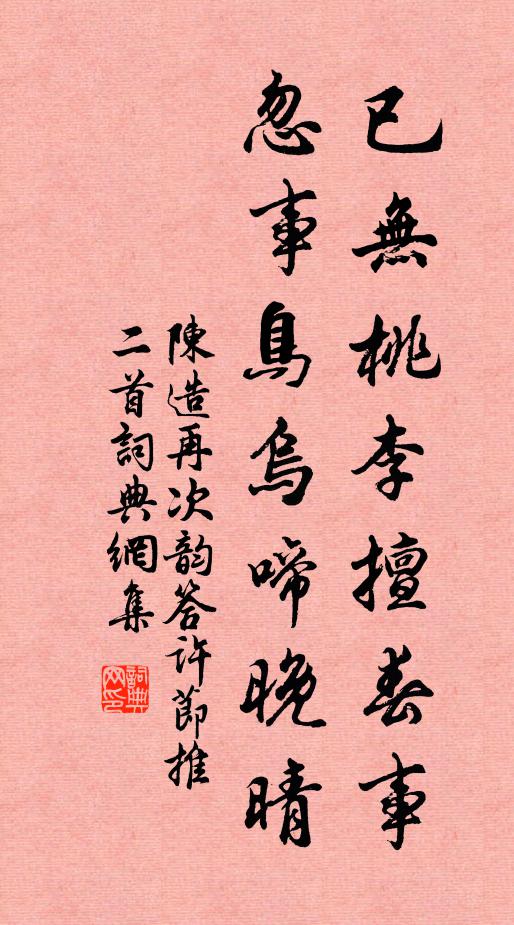 已無桃李擅春事
忽事鳥烏啼晚晴
陳造再次韵答許節推
二首詞典網集
詞典
网印